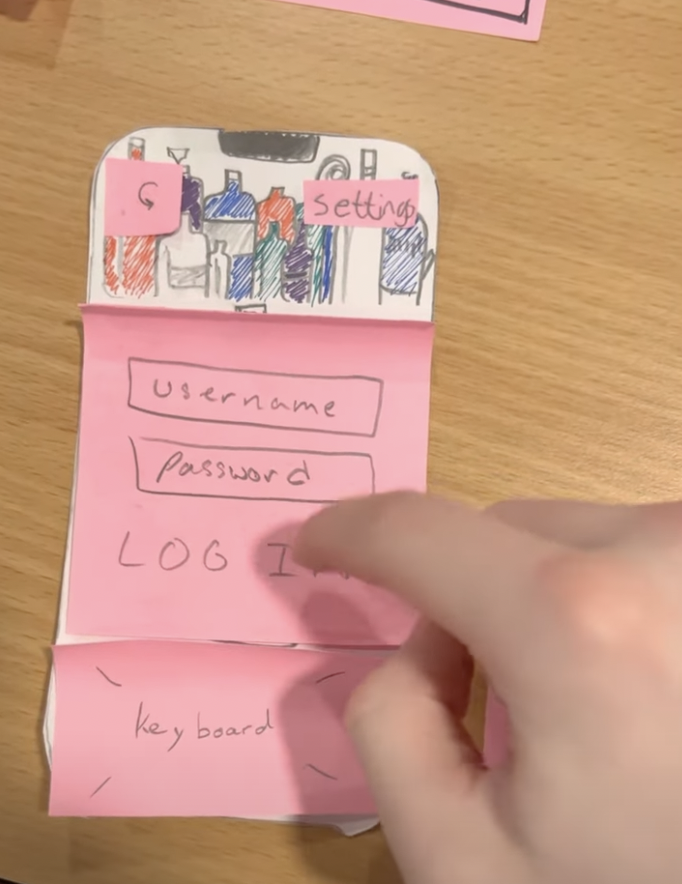 settings
username
Password
LOG IN
keyboard